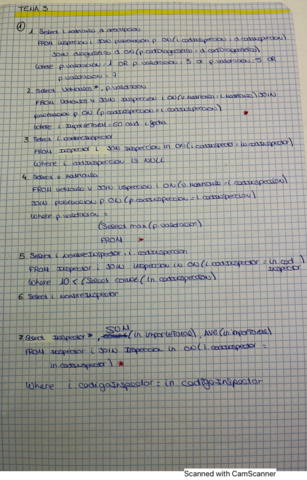 TEMA 5
1. Select i.matricula, d.descripcion
FROM inspeccion i JOIN puntuacion p ON (i.codinspeccion = p.codinspeccion)
JOIN diagnostico d ON (p.coddiagnostico = d.coddiagnostico)
Where p.valoracion = 1 OR p.valoracion = 5 or p.valoracion = 5 OR
p.valoracion = 7
2. Select vehiculos*, p.valoracion
FROM vehiculos v JOIN inspeccion i ON (v.matricula = i.matricula) JOIN
puntuacion p ON (p.codinspeccion = i.codinspeccion)
Where i.importeTotal = 60 and i.fecha
3. Select i.nombreInspector
FROM inspector i JOIN inspeccion in ON (i.codinspector = in.codinspector)
Where i.codinspeccion is NULL
4. Select v.matricula
FROM vehiculo v JOIN inspeccion i ON (v.matricula = i.codinspeccion)
JOIN puntuacion p ON (p.codinspeccion = i.codinspeccion)
Where p.valoracion =
(Select max (p.valoracion)
FROM
5. Select i.nombreInspector, i.codinspeccion
FROM inspector i JOIN inspeccion in ON (i.codinspector = in.cod
inspector
Where 10 < (Select count (in.codinspeccion)
6. Select i.nombreInspector
7. Select Inspector*, SUM (in.importeTotal), AVG (in.importeTotal)
FROM inspector i JOIN Inspeccion in ON (i.codinspector =
in.codinspector)
Where i.codigoInspector = in.codigoInspector
Scanned with CamScanner